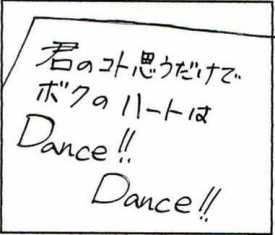 君のコト思うだけで
ボクのハートは
Dance!!
Dance!!